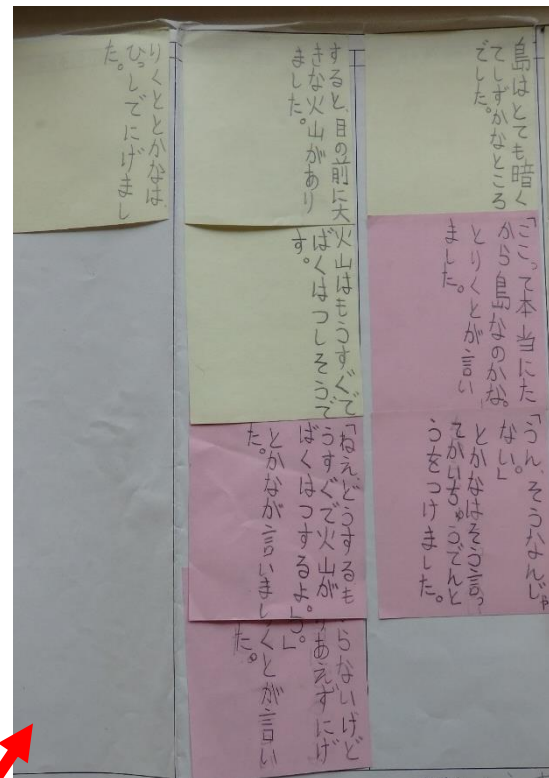 島はとても暗く
てしずかなところ
でした。
「ここって本当にた
から島なのかな。」
とりくとが言い
ました。
「うん、そうなんじゃ
ない」
とかなはそう言っ
てかいちゅうでんと
うをつけました。
すると、目の前に大
きな火山があり
ました。
火山はもうすぐで
ばくはつしそうで
す。
「ねえ、どうするも
うすぐで火山が
ばくはつするよ。」
とかなが言いまし
た。
らないけど
りあえずにげ
う。」
くとが言い
た。
りくととかなは、
ひっしでにげまし
た。